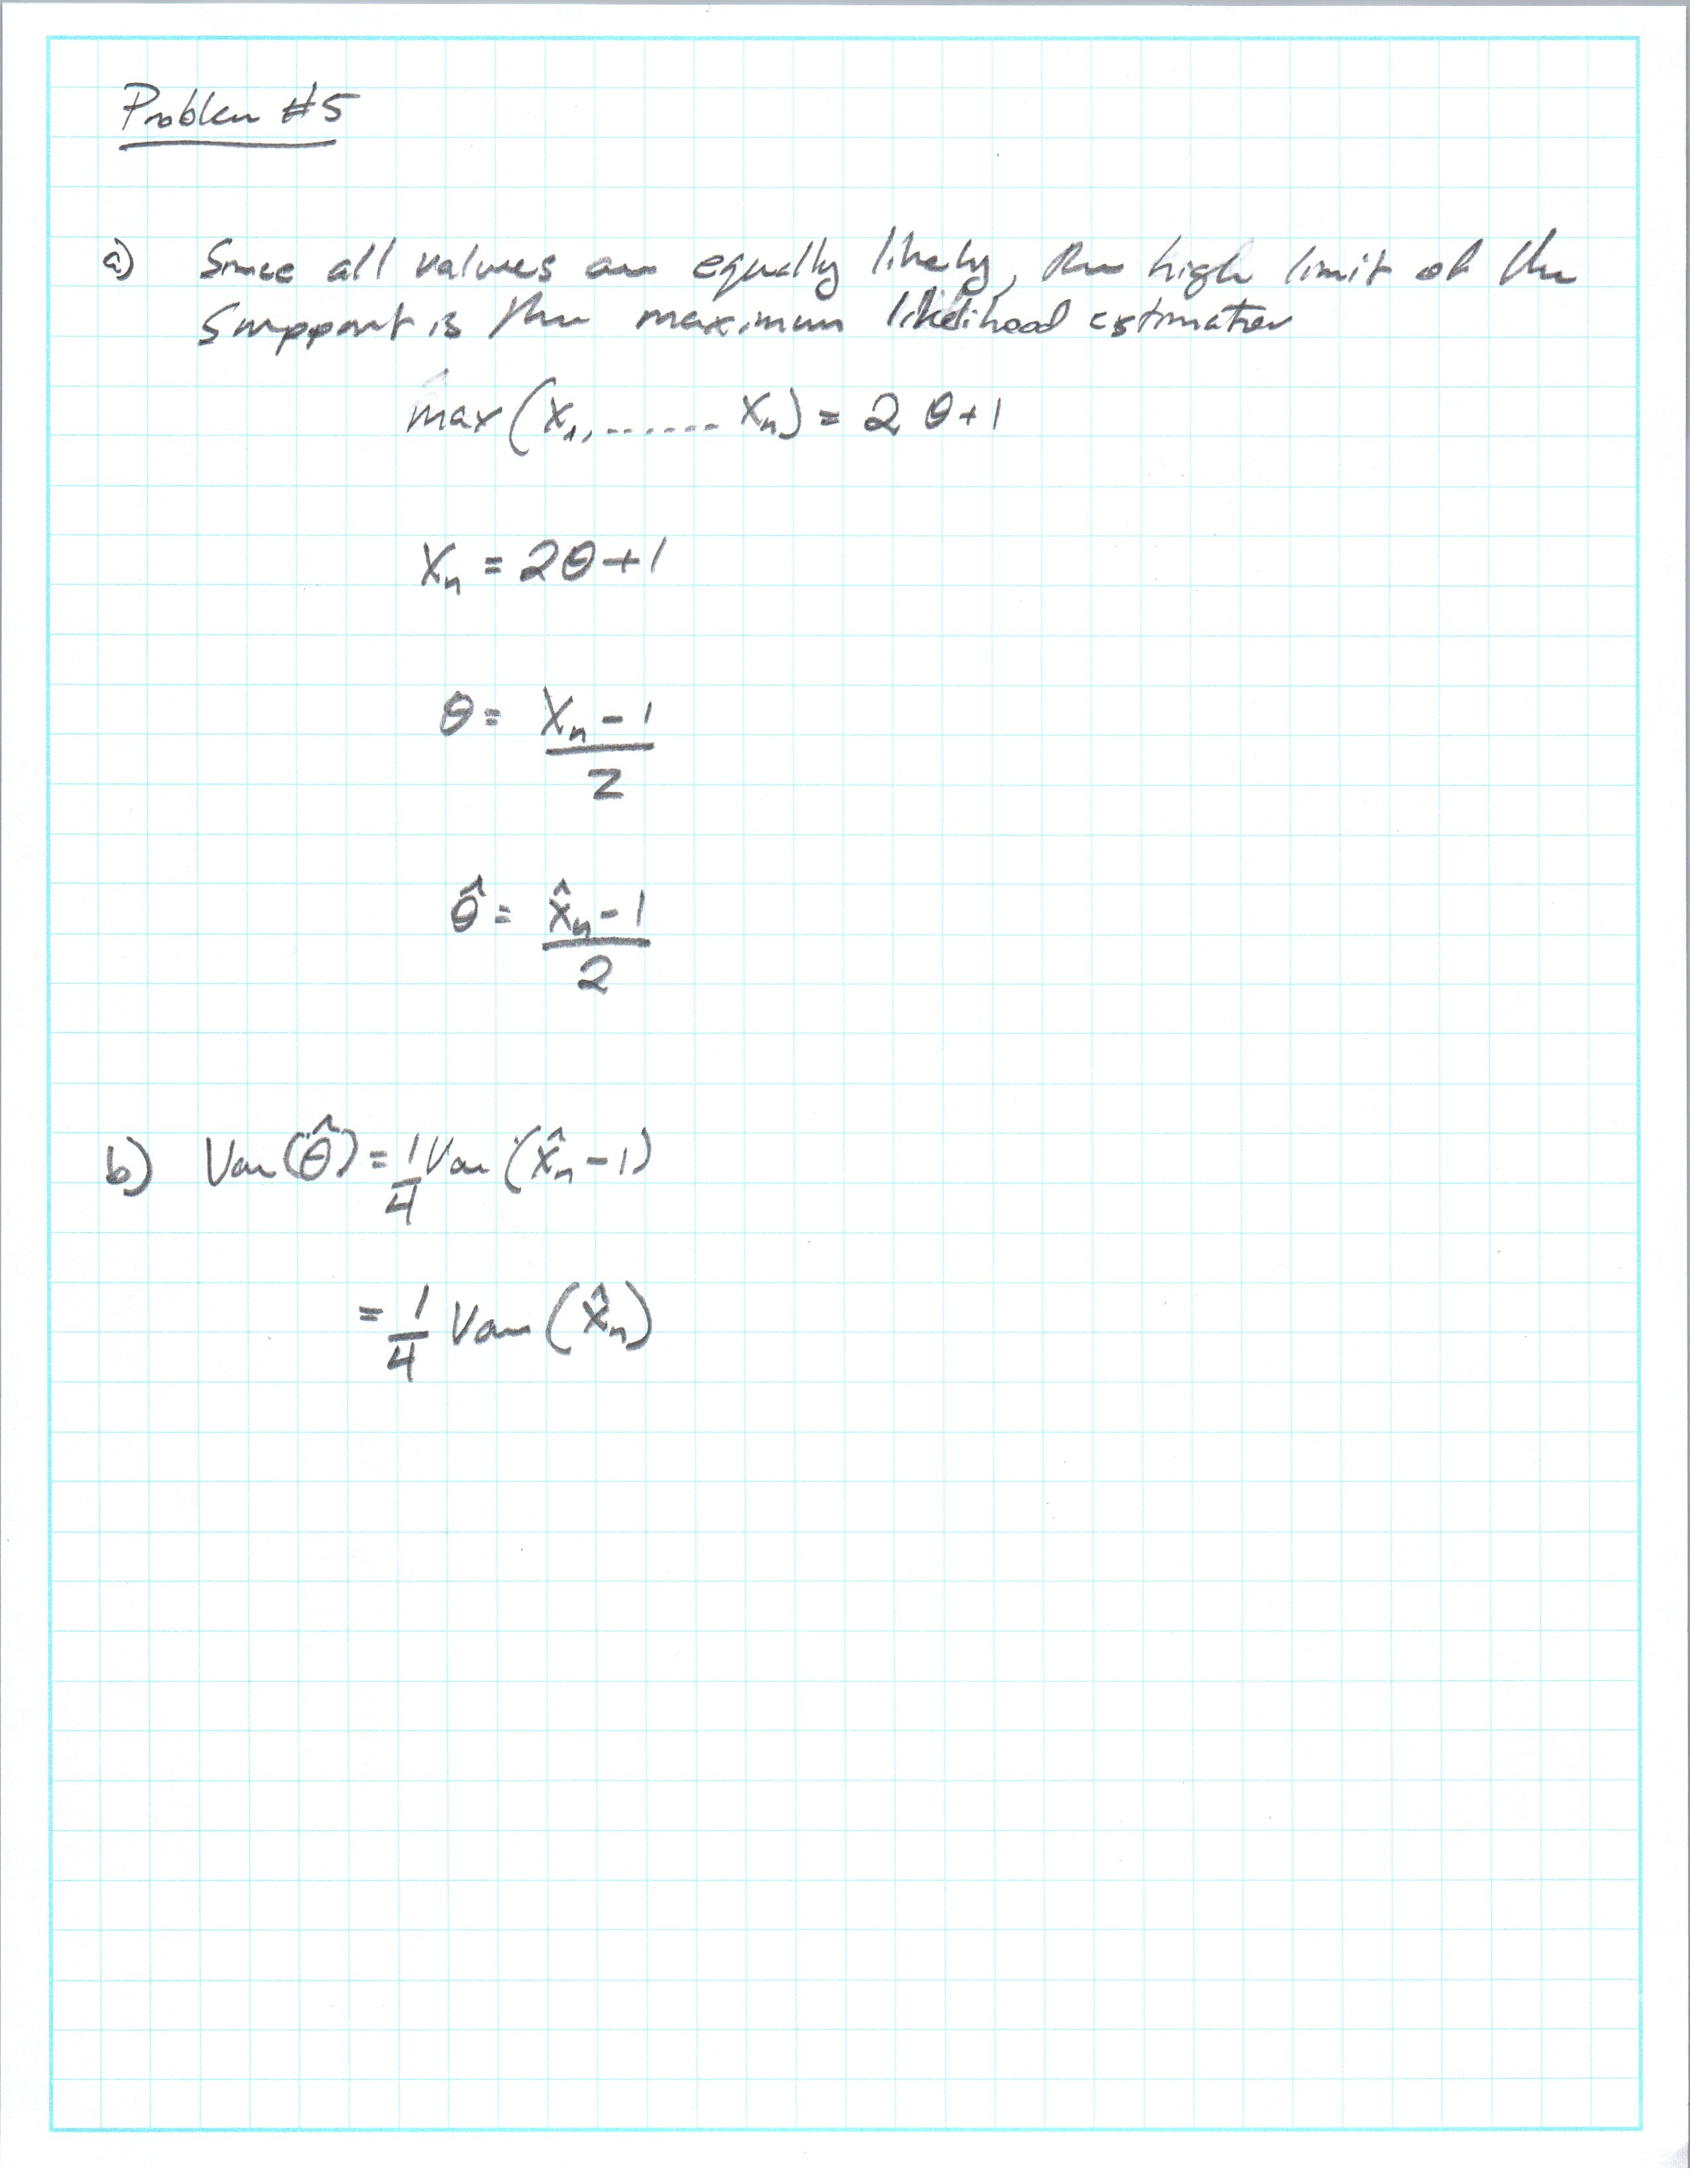 Problem #5
a) Since all values are equally likely, the high limit of the
Support is the maximum likelihood estimator
max (X₁, ....... Xₙ) = 2 θ + 1
Xₙ = 2θ + 1
θ = (Xₙ - 1) / 2
θ̂ = (x̂ₙ - 1) / 2
b) Var (θ̂) = 1/4 Var (x̂ₙ - 1)
= 1/4 Var (x̂ₙ)